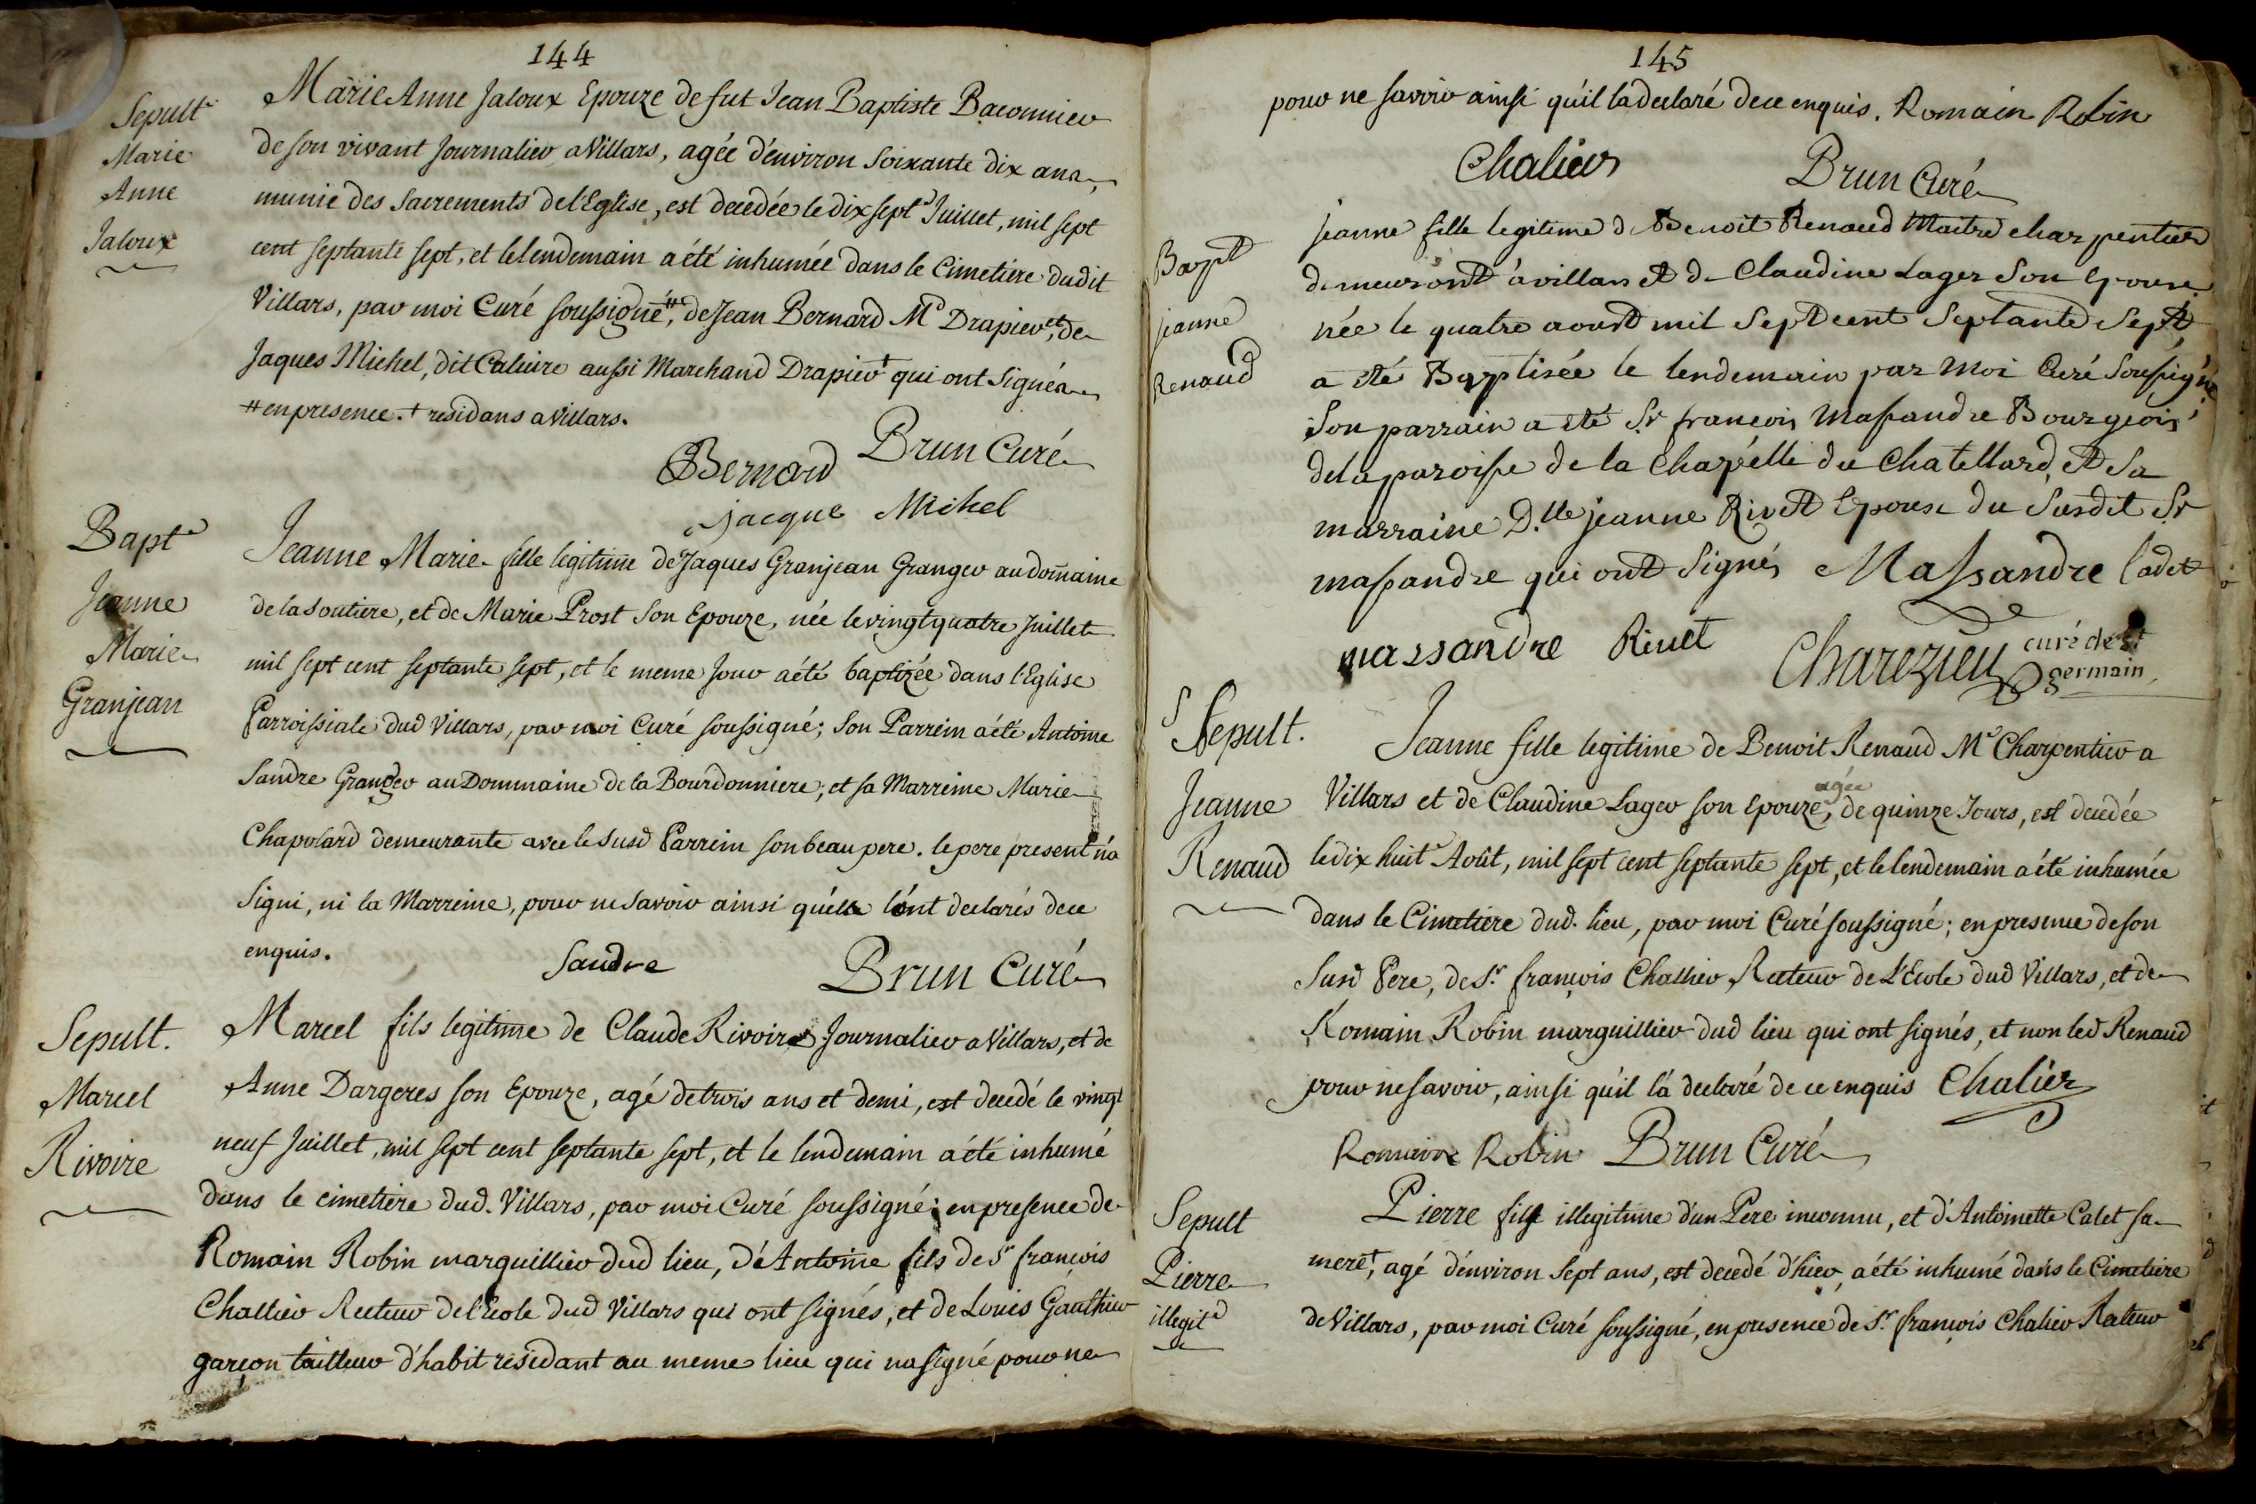 144
Sepult.e
Marie
Anne
Jaloux
Marie Anne Jaloux Epouze de fut Jean Baptiste Baconnier
de son vivant Journalier a Villars, agée d'environ soixante dix ans,
munie des Sacrements de l'Eglise, est decedée le dix sept.e Juillet, mil sept
cent septante sept, et le lendemain a été inhumée dans le Cimetiere dudit
Villars, par moi Curé soussigné #, de Jean Bernard M.d Drapier, et de
Jaques Michel, dit Caluire aussi Marchand Drapier + qui ont signés
# en presence. + residans a Villars.
Bernard Brun Curé
jacque Michel
Bapt.e
Jeanne
Marie
Granjean
Jeanne Marie fille legitime de Jaques Granjean Granger au domaine
de la Soutiere, et de Marie Prost son Epouze, née le vingt quatre Juillet
mil sept cent septante sept, et le meme jour a été baptizée dans l'Eglise
Parroissiale dud Villars, par moi Curé soussigné; son Parrein a été Antoine
Sandre Granger au Dommaine de la Bourdonniere; et sa Marreine Marie
Chapolard demeurante avec le susd Parrein son beau pere. le pere present n'a
signi, ni la Marreine, pour ne savoir ainsi qu'ils l'ont declarés de ce
enquis.
Sandre Brun Curé
Sepult.
Marcel
Rivoire
Marcel fils legitime de Claude Rivoire Journalier a Villars, et de
Anne Dargeres son Epouze, agé de trois ans et demi, est decedé le vingt
neuf Juillet, mil sept cent septante sept, et le lendemain a été inhumé
dans le cimetiere dud. Villars, par moi Curé soussigné; en presence de
Romain Robin marguillier dud lieu, d'Antoine fils de S.r françois
Challier Recteur de l'Ecole dud Villars qui ont signés, et de Louis Gauthier
garçon tailleur d'habit residant au meme lieu qui n'a signé pour ne
145
pour ne savoir ainsi qu'il l'a declaré de ce enquis. Romain Robin
Chalier Brun Curé
Bapt
jeanne
Renaud
jeanne fille legitime de Benoit Renaud Maitre charpentier
demeurant à villars et de Claudine Lager Son epouse
née le quatre aoust mil Sept cent Septante Sept
a été Baptisée le lendemain par moi Curé Soussigné
Son parrain a été Sr françois Massandre Bourgeois
de la paroisse de la Chapelle du Chatellard, et Sa
marraine D.lle jeanne Rivet Epouse du Susdit Sr
massandre qui ont Signés Massandre Cadet
massandre Rivet Charezieu curé de st
germain
Sepult.
Jeanne
Renaud
Jeanne fille legitime de Benoit Renaud M.e Charpentier a
Villars et de Claudine Lager son Epouze, agée de quinze Jours, est decedée
le dix huit.e Août, mil sept cent septante sept, et le lendemain a été inhumée
dans le Cimetiere dud. lieu, par moi Curé soussigné; en presence de son
susd Pere, de S.r françois Challier Recteur de L'Ecole dud Villars, et de
Romain Robin marguillier dud lieu qui ont signés, et non led Renaud
pour ne savoir, ainsi qu'il l'a declaré de ce enquis Chalier
Romain Robin Brun Curé
Sepult
Pierre
illegit.e
Pierre fils illegitime d'un Pere inconnu, et d'Antoinette Calet sa
mere +, agé d'environ sept ans, est decedé d'hier, a été inhumé dans le Cimetiere
de Villars, par moi Curé soussigné, en presence de S.r françois Chalier Recteur